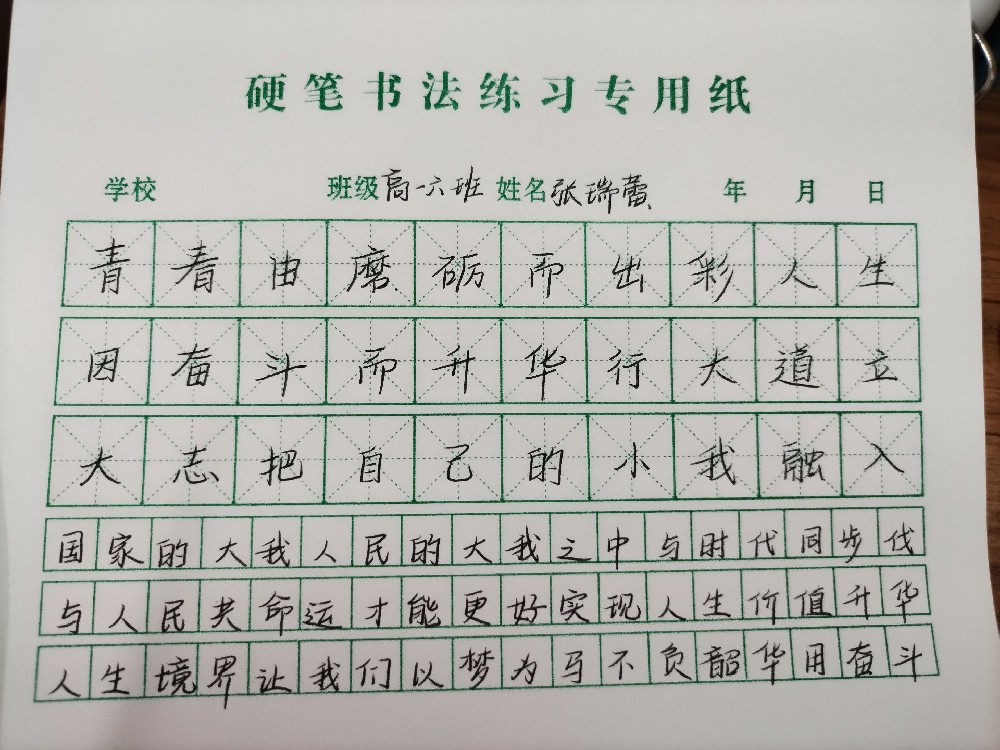 硬笔书法练习专用纸
学校 班级高一六班 姓名张瑞蕾 年 月 日
青春由磨砺而出彩人生
因奋斗而升华行大道立
大志把自己的小我融入
国家的大我人民的大我之中与时代同步伐
与人民共命运才能更好实现人生价值升华
人生境界让我们以梦为马不负韶华用奋斗